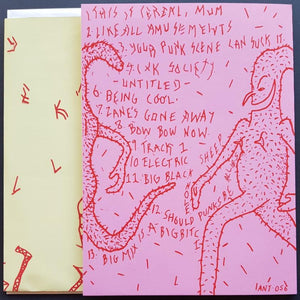 1 THIS IS CEREAL, MUM
2. LIKE ALL AMUSEMENTS
3. YOUR PUNK SCENE CAN SUCK IT.
SOCIETY
UNTITLED-
6. BEING COOL.
7. ZANE'S GONE AWAY
8 BOW BOW NOW.
9 TRACK 1
10 ELECTRIC SHEEP
11 BIG BLACK
12 SHOULD PUNKS BE
13. BIG MIX IS A BIG BITC
IANT 056